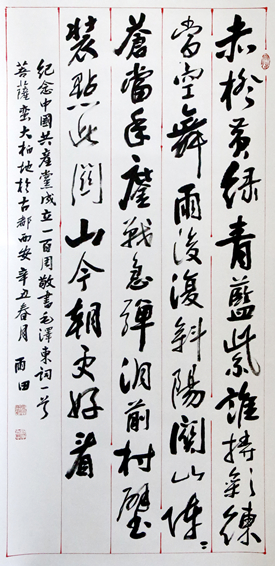 赤橙黃綠青藍紫誰持彩練
當空舞雨後復斜陽關山陣〻
蒼當年鏖戰急彈洞前村壁
裝點此關山今朝更好看
紀念中國共產黨成立一百周敬書毛澤東詞一首
菩薩蠻大柏地於古都西安辛丑春月 雨田